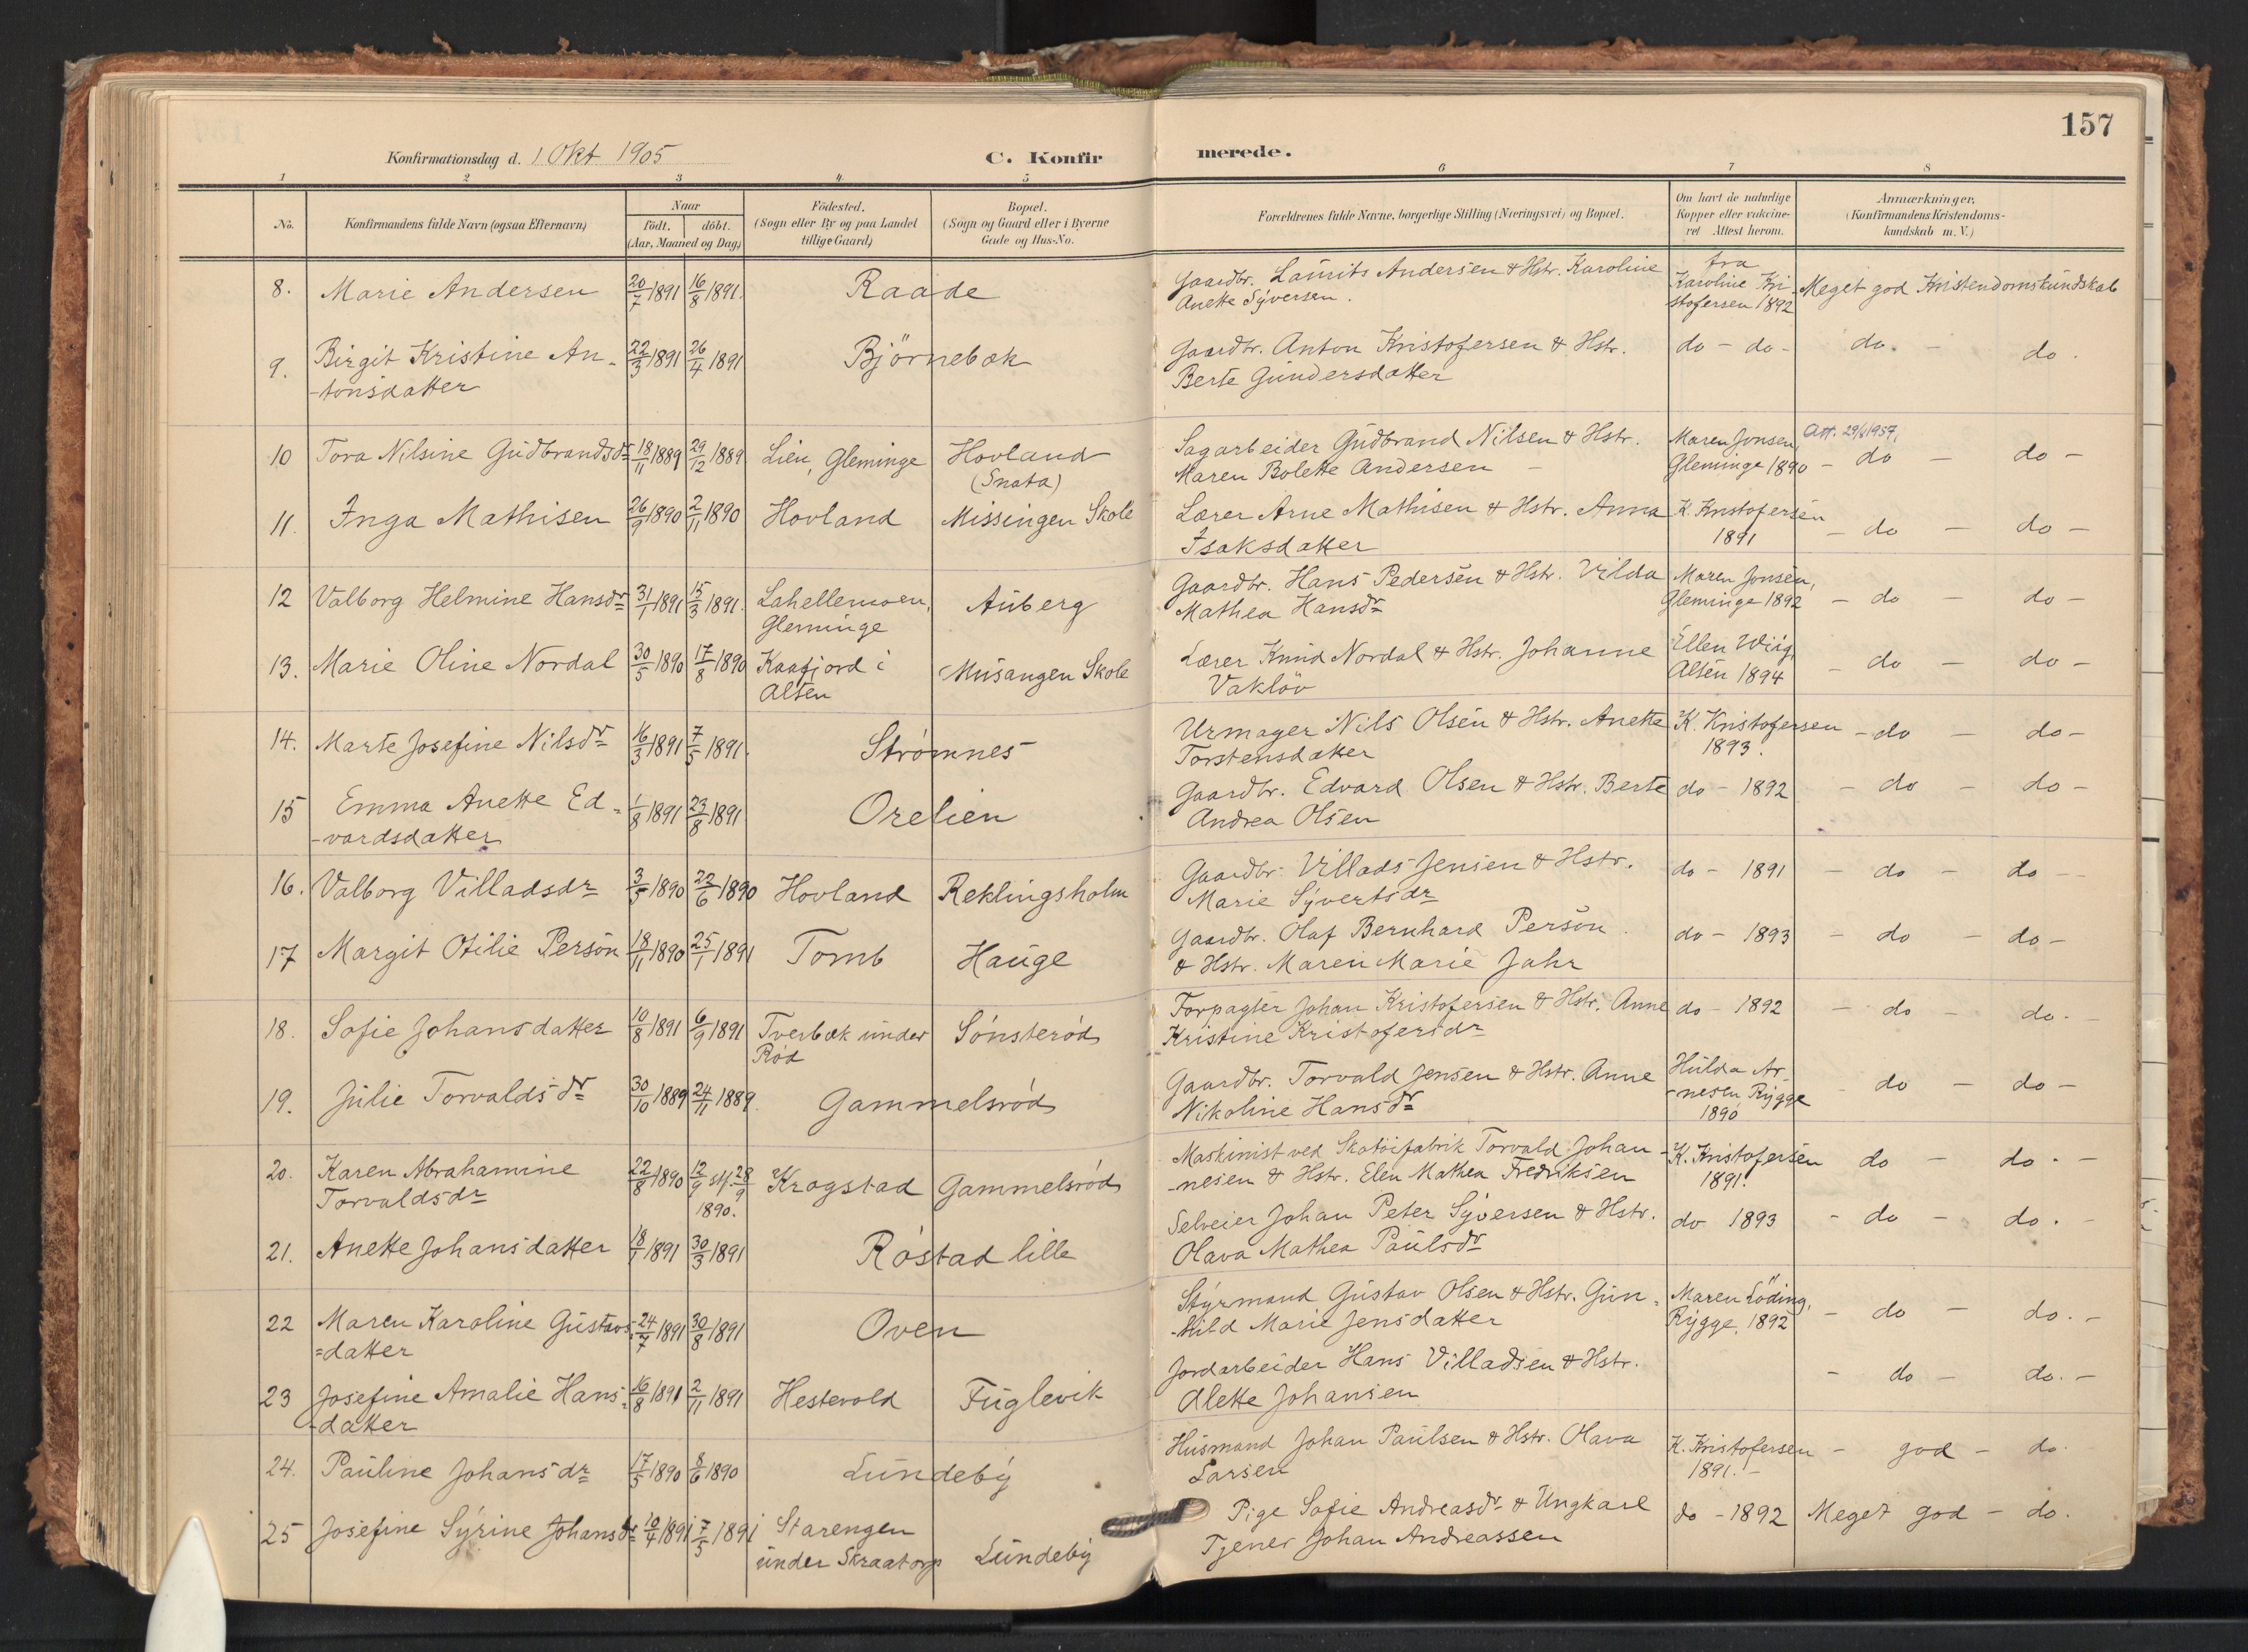 157
Konfirmationsdag d. 1 Okt 1905 C. Konfirmerede.
1 2 3 4 5 6 7 8
No. Konfirmandens fulde Navn (ogsaa Efternavn) Naar født. døbt. (Aar, Maaned og Dag) Fødested. (Sogn eller By og paa Landet tillige Gaard) Bopæl. (Sogn og Gaard eller i Byerne Gade og Hus-No. Forældrenes fulde Navne, borgerlige Stilling (Næringsvei) og Bopæl. Om havt de naturlige Kopper eller vakcineret Attest herom. Anmærkninger. (Konfirmandens Kristendomskundskab m. V.)
8. Marie Andersen 20/7 1891 16/8 1891. Raade Gaardbr. Laurits Andersen & Hstr. Karoline fra
Anette Syversen. Karoline Kri-
stofersen 1892 Meget god Kristendomskundskab
9. Birgit Kristine An- 22/3 1891 26/4 1891 Björnebæk Gaardbr. Anton Kristofersen & Hstr. do - do - do. - do.
-tonsdatter Berte Gundersdatter
10 Tora Nilsine Gudbrandsdr 18/11 1889 29/12 1889 Lien, Gleminge Hovland Sagarbeider Gudbrand Nilsen & Hstr. Maren Jonsen, Att. 29/6 1957,
(Snata) Maren Bolette Andersen - Gleminge 1890 - do - do -
11. Inga Mathisen 26/9 1890 2/11 1890 Hovland Missingen Skole Lærer Arne Mathisen & Hstr. Anna K. Kristofersen
Isaksdatter 1891 - do - do -
12 Valborg Helmine Hansdr 31/1 1891 15/3 1891. Lahellemoen, Auberg Gaardbr. Hans Pedersen & Hstr. Vilda Maren Jonsen,
Gleminge Mathea Hansdr Gleminge 1892 - do - do -
13. Marie Oline Nordal 30/5 1890 17/8 1890 Kaafjord i Musangen Skole Lærer Knud Nordal & Hstr. Johanne Ellen Wiig,
Alten Vakløv Alten 1894 - do - do -
14. Marte Josefine Nilsdr 16/3 1891 7/5 1891. Strømnes Urmager Nils Olsen & Hstr. Anette K. Kristofersen - do - do -
Torstensdatter 1893.
15 Emma Anette Ed- 1/8 1891 23/8 1891 Orelien Gaardbr. Edvard Olsen & Hstr. Berte do - 1892 - do - do -
-vardsdatter Andrea Olsen
16. Valborg Villadsdr 3/5 1890 22/6 1890 Hovland Reklingsholm Gaardbr. Villads Jensen & Hstr. do - 1891 - do - do -
Marie Syvertsdr
17 Margit Otilie Person 18/11 1890 25/1 1891 Tomb Hauge Gaardbr. Olaf Bernhard Person. do - 1893 - do - do -
& Hstr. Maren Marie Jahr
18. Sofie Johansdatter 10/8 1891 6/9 1891 Tverbæk under Sønsterød Forpagter Johan Kristofersen & Hstr. Anne do - 1892 - do - do. -
Rød Kristine Kristofersdr
19. Julie Torvaldsdr 30/10 1889 24/11 1889. Gammelsrød Gaardbr. Torvald Jensen & Hstr. Anne Hulda Ar-
Nikoline Hansdr -nesen Rygge
1890 - do - do -
20. Karen Abrahamine 22/8 1890 12/9 stf. 28/9 Krogstad Gammelsrød Maskinist ved Skotøifabrik Torvald Johan- K. Kristofersen do - do. -
Torvaldsdr 1890. -nesen & Hstr. Elen Mathea Fredriksen 1891.
21. Anette Johansdatter 18/1 1891 30/3 1891 Røstad lille Selveier Johan Peter Syversen & Hstr. do 1893 - do - do. -
Olava Mathea Paulsdr
22 Maren Karoline Gustavs- 24/7 1891 30/8 1891 Oven Styrmand Gustav Olsen & Hstr. Gun- Maren Löding,
=datter -hild Marie Jensdatter Rygge, 1892 - do - do. -
23 Josefine Amalie Hans- 16/8 1891 2/11 1891 Hestevold Fuglevik Jordarbeider Hans Villadsen & Hstr. - do - do. -
-datter Alette Johansen
24. Pauline Johansdr 17/5 1890 8/6 1890 Lundeby Husmand Johan Paulsen & Hstr. Olava K. Kristofersen - god - do.
Larsen 1891. -
25 Josefine Syrine Johansdr 10/4 1891 7/5 1891 Starengen Lundeby Pige Sofie Andreasdr & Ungkarl do - 1892 Meget god - do.
under Skraatorp Tjener Johan Andreassen